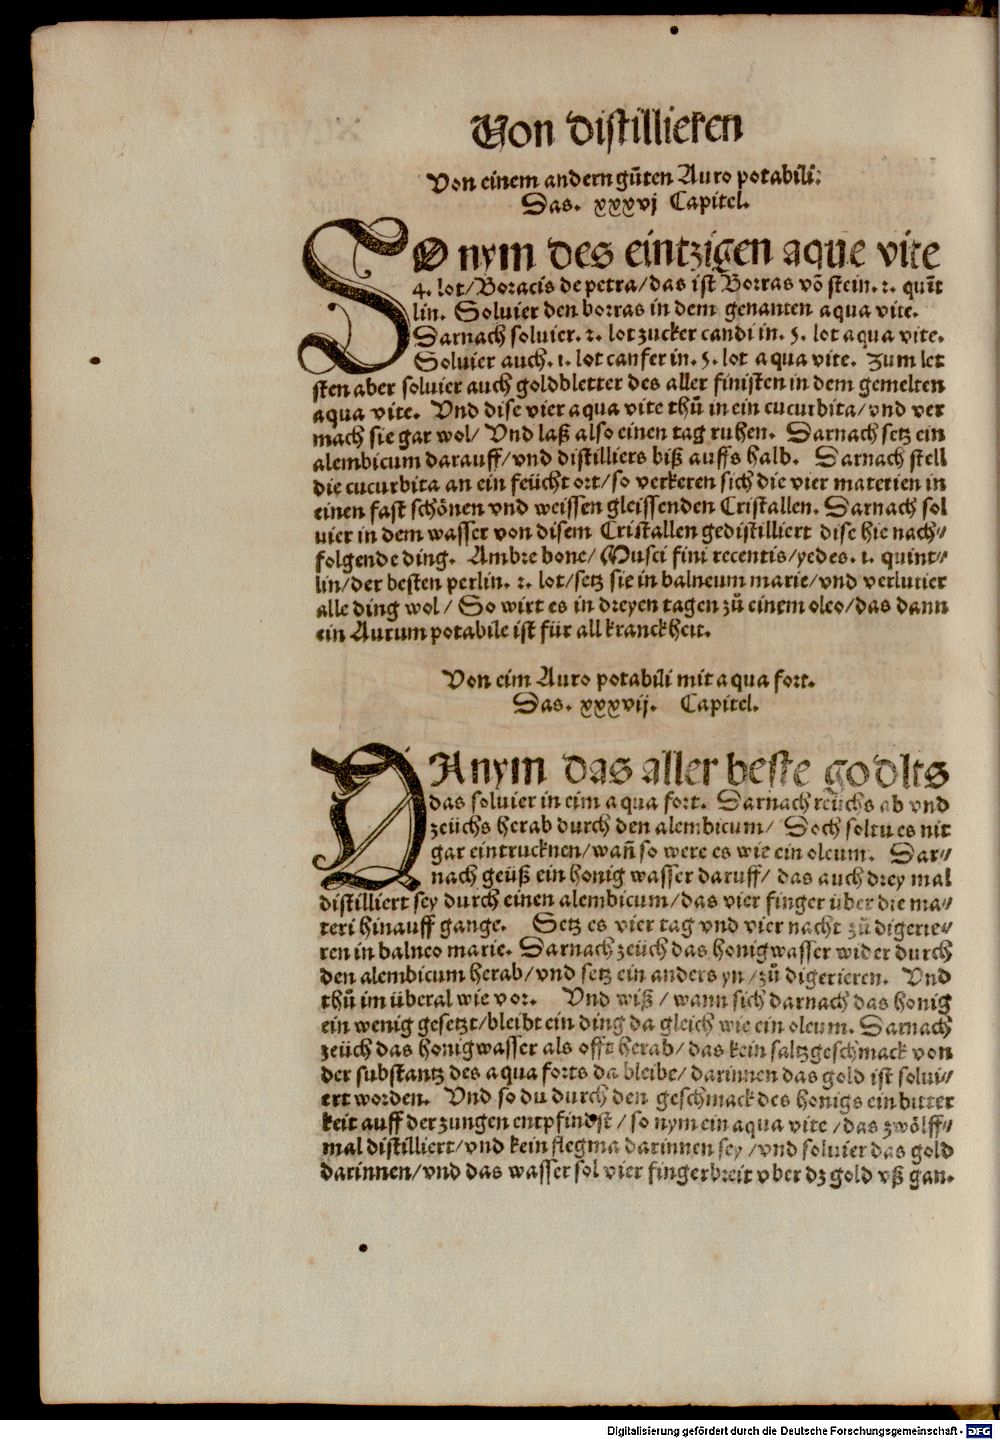 Von distillieren
Von einem andern gůten Auro potabili:
Das. xxxvj Capitel.
SO nym des eintzigen aque vite
4. lot/Boracis de petra/das ist Borras võ stein. 2. quit
lin. Soluier den borras in dem genanten aqua vite.
Darnach soluier. 2. lot zucker candi in. 5. lot aqua vite.
Soluier auch. 1. lot canfer in. 5. lot aqua vite. Zum let
sten aber soluier auch goldbletter des aller finisten in dem gemelten
aqua vite. Vnd dise vier aqua vite thů in ein cucurbita/vnd ver
mach sie gar wol/ Vnd laß also einen tag ruhen. Darnach setz ein
alembicum darauff/vnd distilliers biß auffs halb. Darnach stell
die cucurbita an ein feücht ort/so verkeren sich die vier materien in
einen fast schönen vnd weissen gleissenden Cristallen. Darnach sol
uier in dem wasser von disem Cristallen gedistilliert dise hie nach⸗
folgende ding. Ambre bone/ Musci fini recentis/yedes. 1. quint⸗
lin/der besten perlin. 2. lot/setz sie in balneum marie/vnd verlutier
alle ding wol/ So wirt es in dreyen tagen zů einem oleo/das dann
ein Aurum potabile ist für all kranckheit.
Von eim Auro potabili mit aqua fort.
Das. xxxvij. Capitel.
DA nym das aller beste godlts
das soluier in eim aqua fort. Darnach reüchs ab vnd
zeüchs herab durch den alembicum/ Doch soltu es nit
gar eintrucknen/wañ so were es wie ein oleum. Dar⸗
nach geüß ein honig wasser daruff/ das auch drey mal
distilliert sey durch einen alembicum/das vier finger über die ma⸗
teri hinauff gange. Setz es vier tag vnd vier nacht zů digerie⸗
ren in balneo marie. Darnach zeüch das honigwasser wider durch
den alembicum herab/vnd setz ein anders yn/zů digerieren. Vnd
thů im überal wie vor. Vnd wiß/ wann sich darnach das honig
ein wenig gesetzt/bleibt ein ding da gleich wie ein oleum. Darnach
zeüch das honigwasser als offt herab/das kein saltzgeschmack von
der substantz des aqua forts da bleibe/darinnen das gold ist solui⸗
ert worden. Vnd so du durch den geschmack des honigs ein bitter
keit auff der zungen entpfindst/so nym ein aqua vite/das zwölff⸗
mal distilliert/vnd kein flegma darinnen sey/vnd soluier das gold
darinnen/vnd das wasser sol vier fingerbreit vber dz gold vß gan.
Digitalisierung gefördert durch die Deutsche Forschungsgemeinschaft - DFG